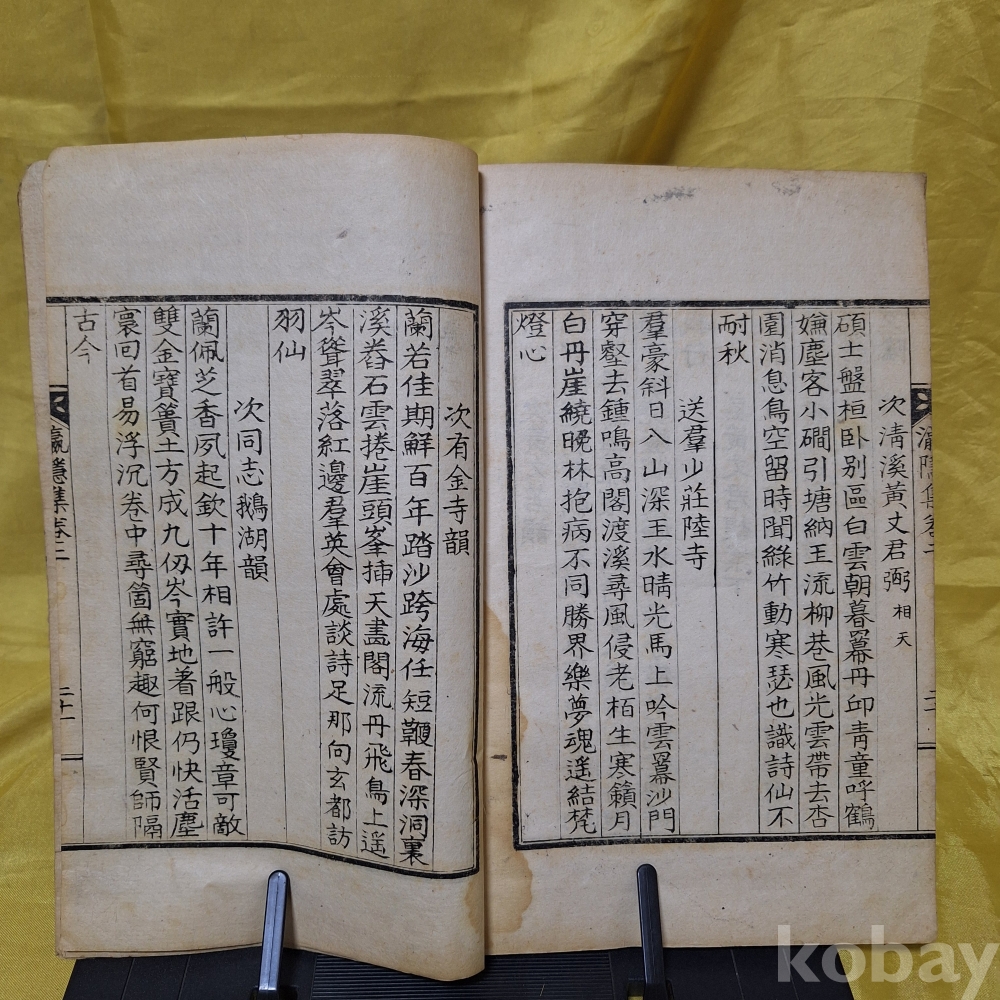 次淸溪黃丈君弼 相天
碩士盤桓卧别區白雲朝暮羃丹邱靑童呼鶴
嫌塵客小磵引塘納玉流柳巷風光雲帶去杏
園消息鳥空留時聞綠竹動寒瑟也識詩仙不
耐秋
送羣少莊陸寺
羣豪斜日入山深玉水晴光馬上吟雲羃沙門
穿壑去鍾鳴高閣渡溪尋風侵老栢生寒籟月
白丹崖繞晩林抱病不同勝界樂夢魂遥結梵
燈心
瀛隱集卷二
二十
次有金寺韻
蘭若佳期鮮百年踏沙跨海任短鞭春深洞裏
溪沓石雲捲崖頭峯揷天畵閣流丹飛鳥上遥
岑聳翠落紅邊羣英會處談詩足那向玄都訪
羽仙
次同志鵝湖韻
蘭佩芝香夙起欽十年相許一般心瓊章可敵
雙金寶簣土方成九仭岑實地着跟仍快活塵
寰回首易浮沉卷中尋箇無窮趣何恨賢師隔
古今
瀛隱集卷二
二十一
kobay